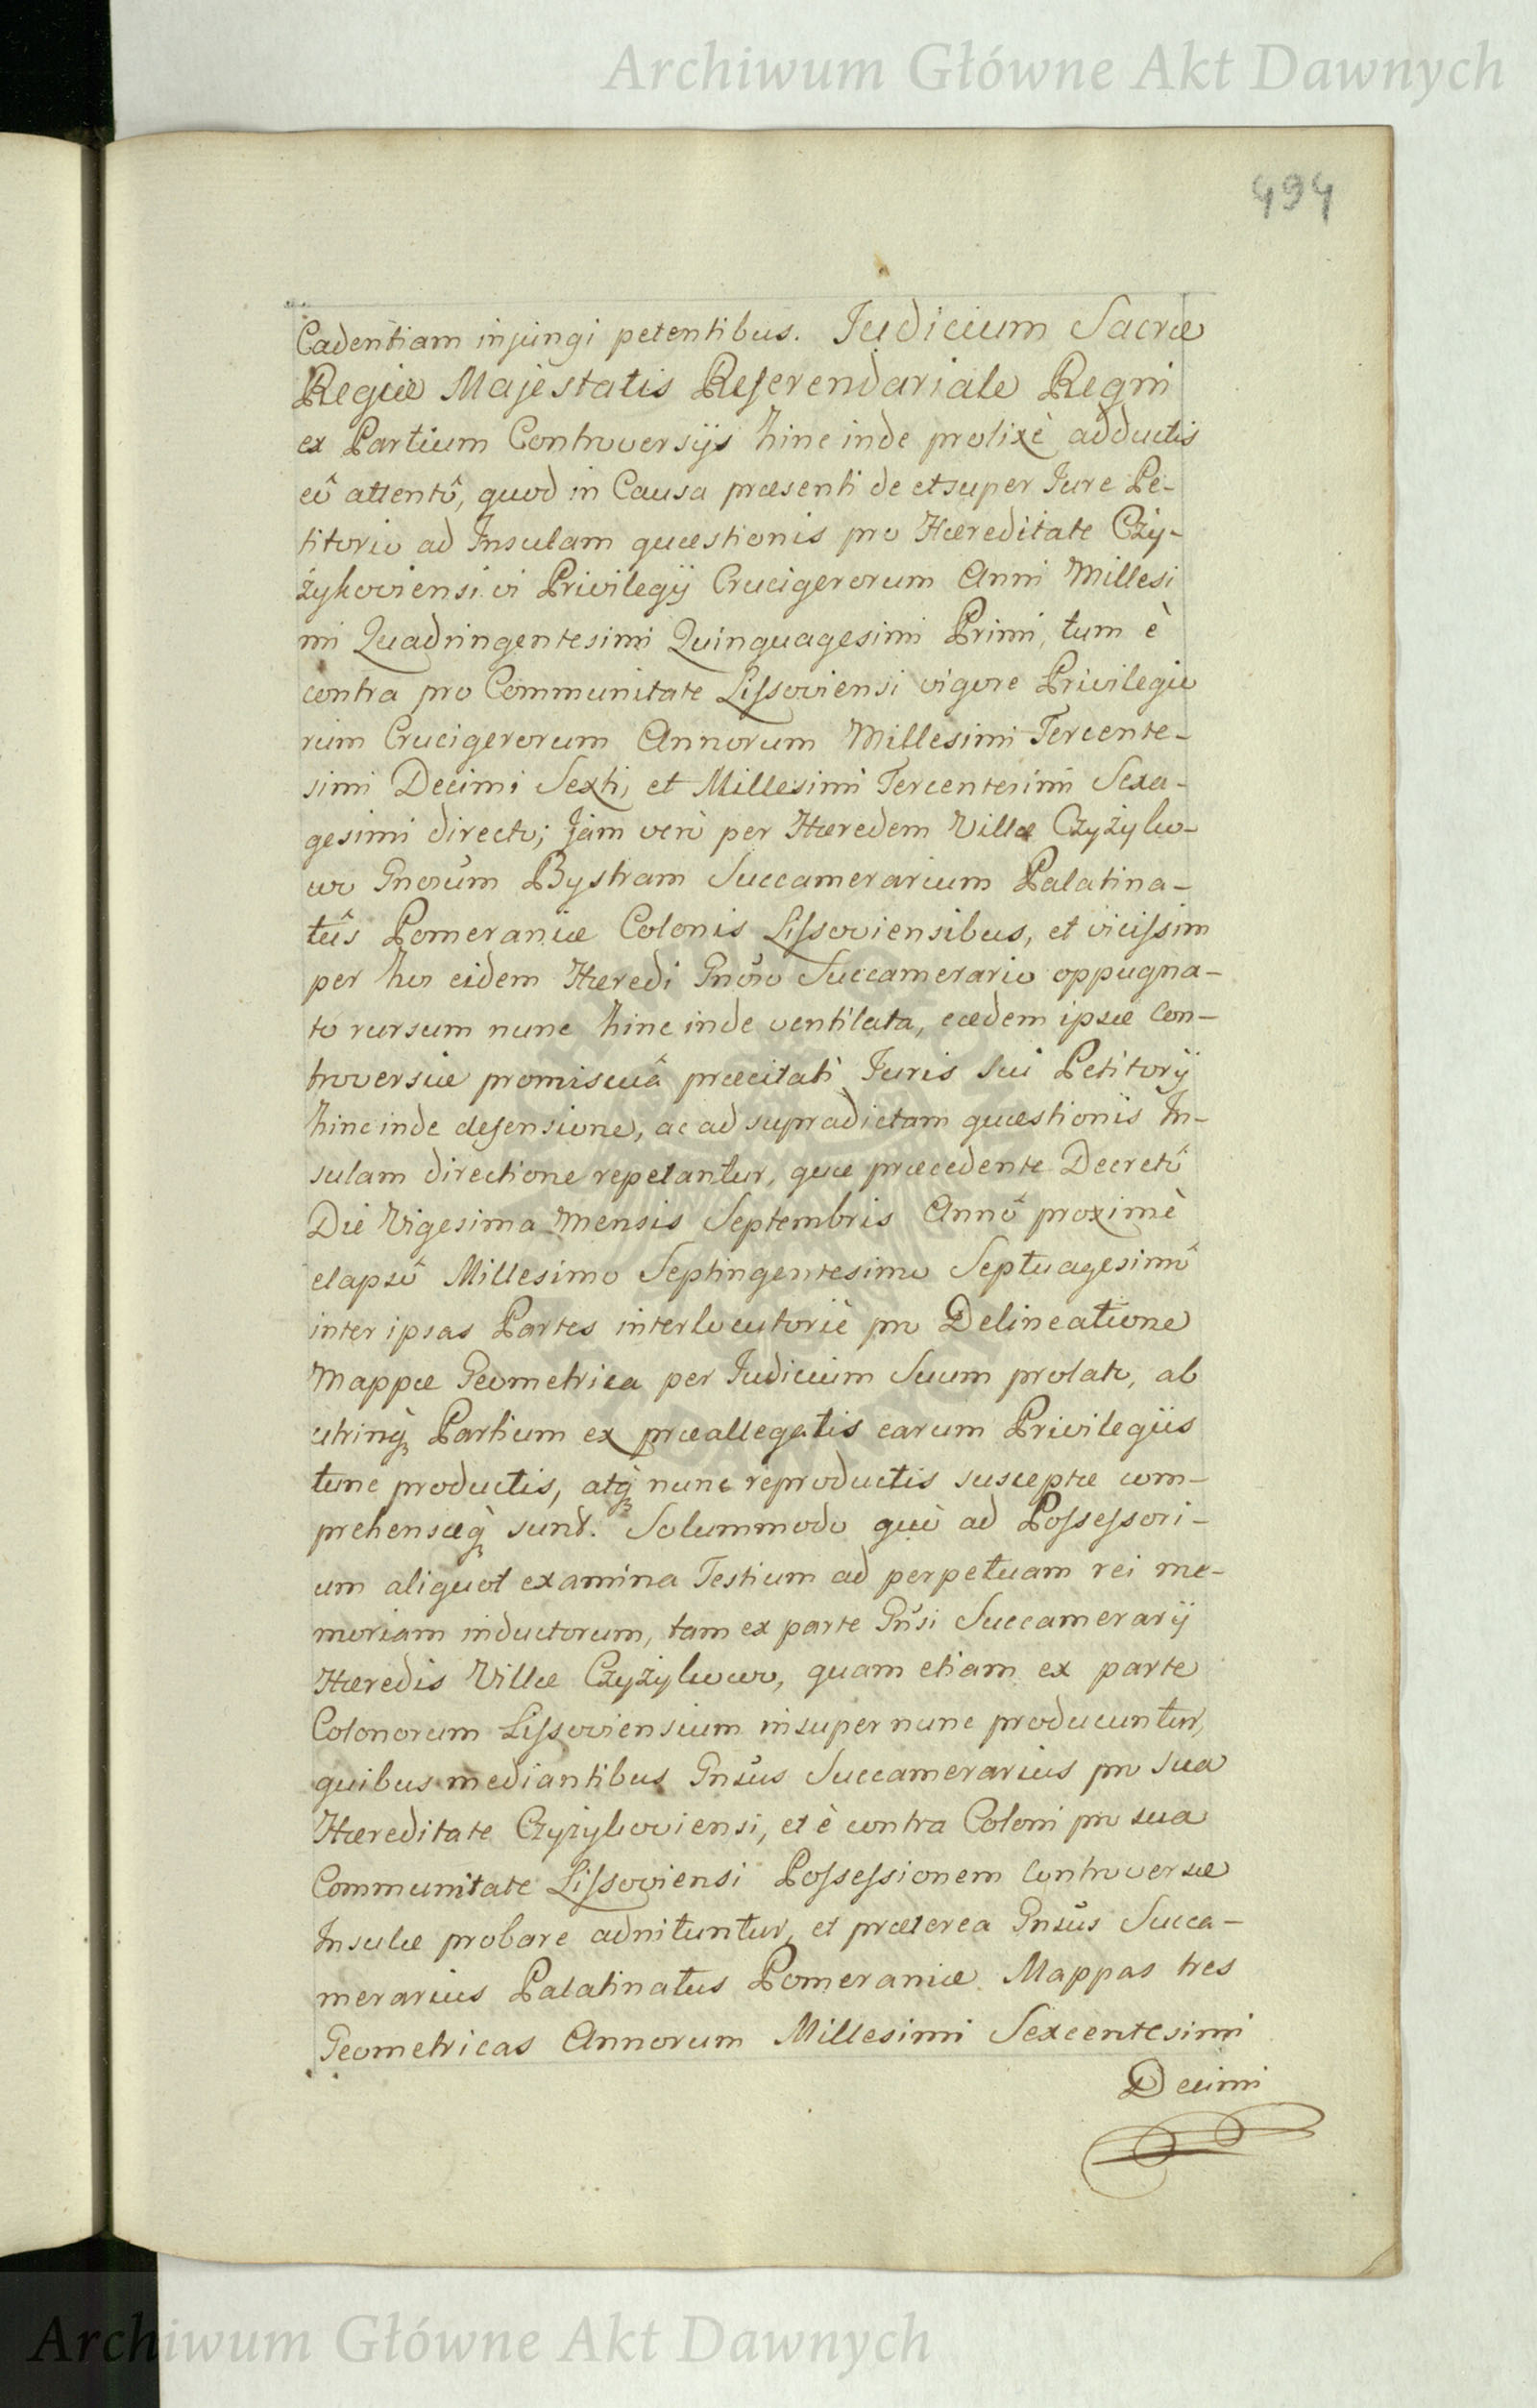 Archiwum Główne Akt Dawnych
494
Cadentiam injungi petentibus. Judicium Sacræ
Regiæ Majestatis Referendariale Regni
ex Partium Controversijs hinc inde prolixè adductis
eô attentô, quod in Causa præsenti de et super Jure Pe-
titorio ad Insulam quæstionis pro Hæreditate Czy-
żykoviensi vi Privilegij Crucigerorum Anni Millesi
mi Quadringentesimi Quinquagesimi Primi, tum è
contra pro Communitate Lissoviensi vigore Privilegio
rum Crucigerorum Annorum Millesimi Tercente-
simi Decimi Sexti, et Millesimi Tercentesimi Sexa-
gesimi directo; Jam verò per Hæredem Villæ Czyżyko-
wo Gnosum Bystram Succamerarium Palatina-
tûs Pomeraniæ Colonis Lissoviensibus, et vicissim
per hos eidem Hæredi Gnoso Succamerario oppugna-
to rursum nunc hinc inde ventilata, eædem ipsæ Con-
troversiæ promiscuâ præcitati Juris sui Petitorij
hinc inde defensione, ac ad supradictam quæstionis In-
sulam directione repetantur, quæ præcedente Decretô
Die Vigesima Mensis Septembris Annô proximè
elapsô Millesimo Septingentesimo Septuagesimô
inter ipsas Partes interlocutoriè pro Delineatione
Mappæ Geometrica per Judicium Suum prolato, ab
utrinq̀ Partium ex præallegatis earum Privilegiis
tunc productis, atq̀ nunc reproductis susceptæ com-
prehensæq̀ sunt. Solummodo quò ad Possessori-
um aliquot examina Testium ad perpetuam rei me-
moriam inductorum, tam ex parte Gnsi Succamerarij
Hæredis Villæ Czyżykowo, quam etiam ex parte
Colonorum Lissoviensium insuper nunc producuntur,
quibus mediantibus Gnsus Succamerarius pro sua
Hæreditate Czyżykoviensi, et è contra Coloni pro sua
Communitate Lissoviensi Possessionem Controversæ
Insulæ probare adnituntur, et præterea Gnsus Succa-
merarius Palatinatus Pomeraniæ Mappas tres
Geometricas Annorum Millesimi Sexcentesimi
Decimi
Archiwum Główne Akt Dawnych